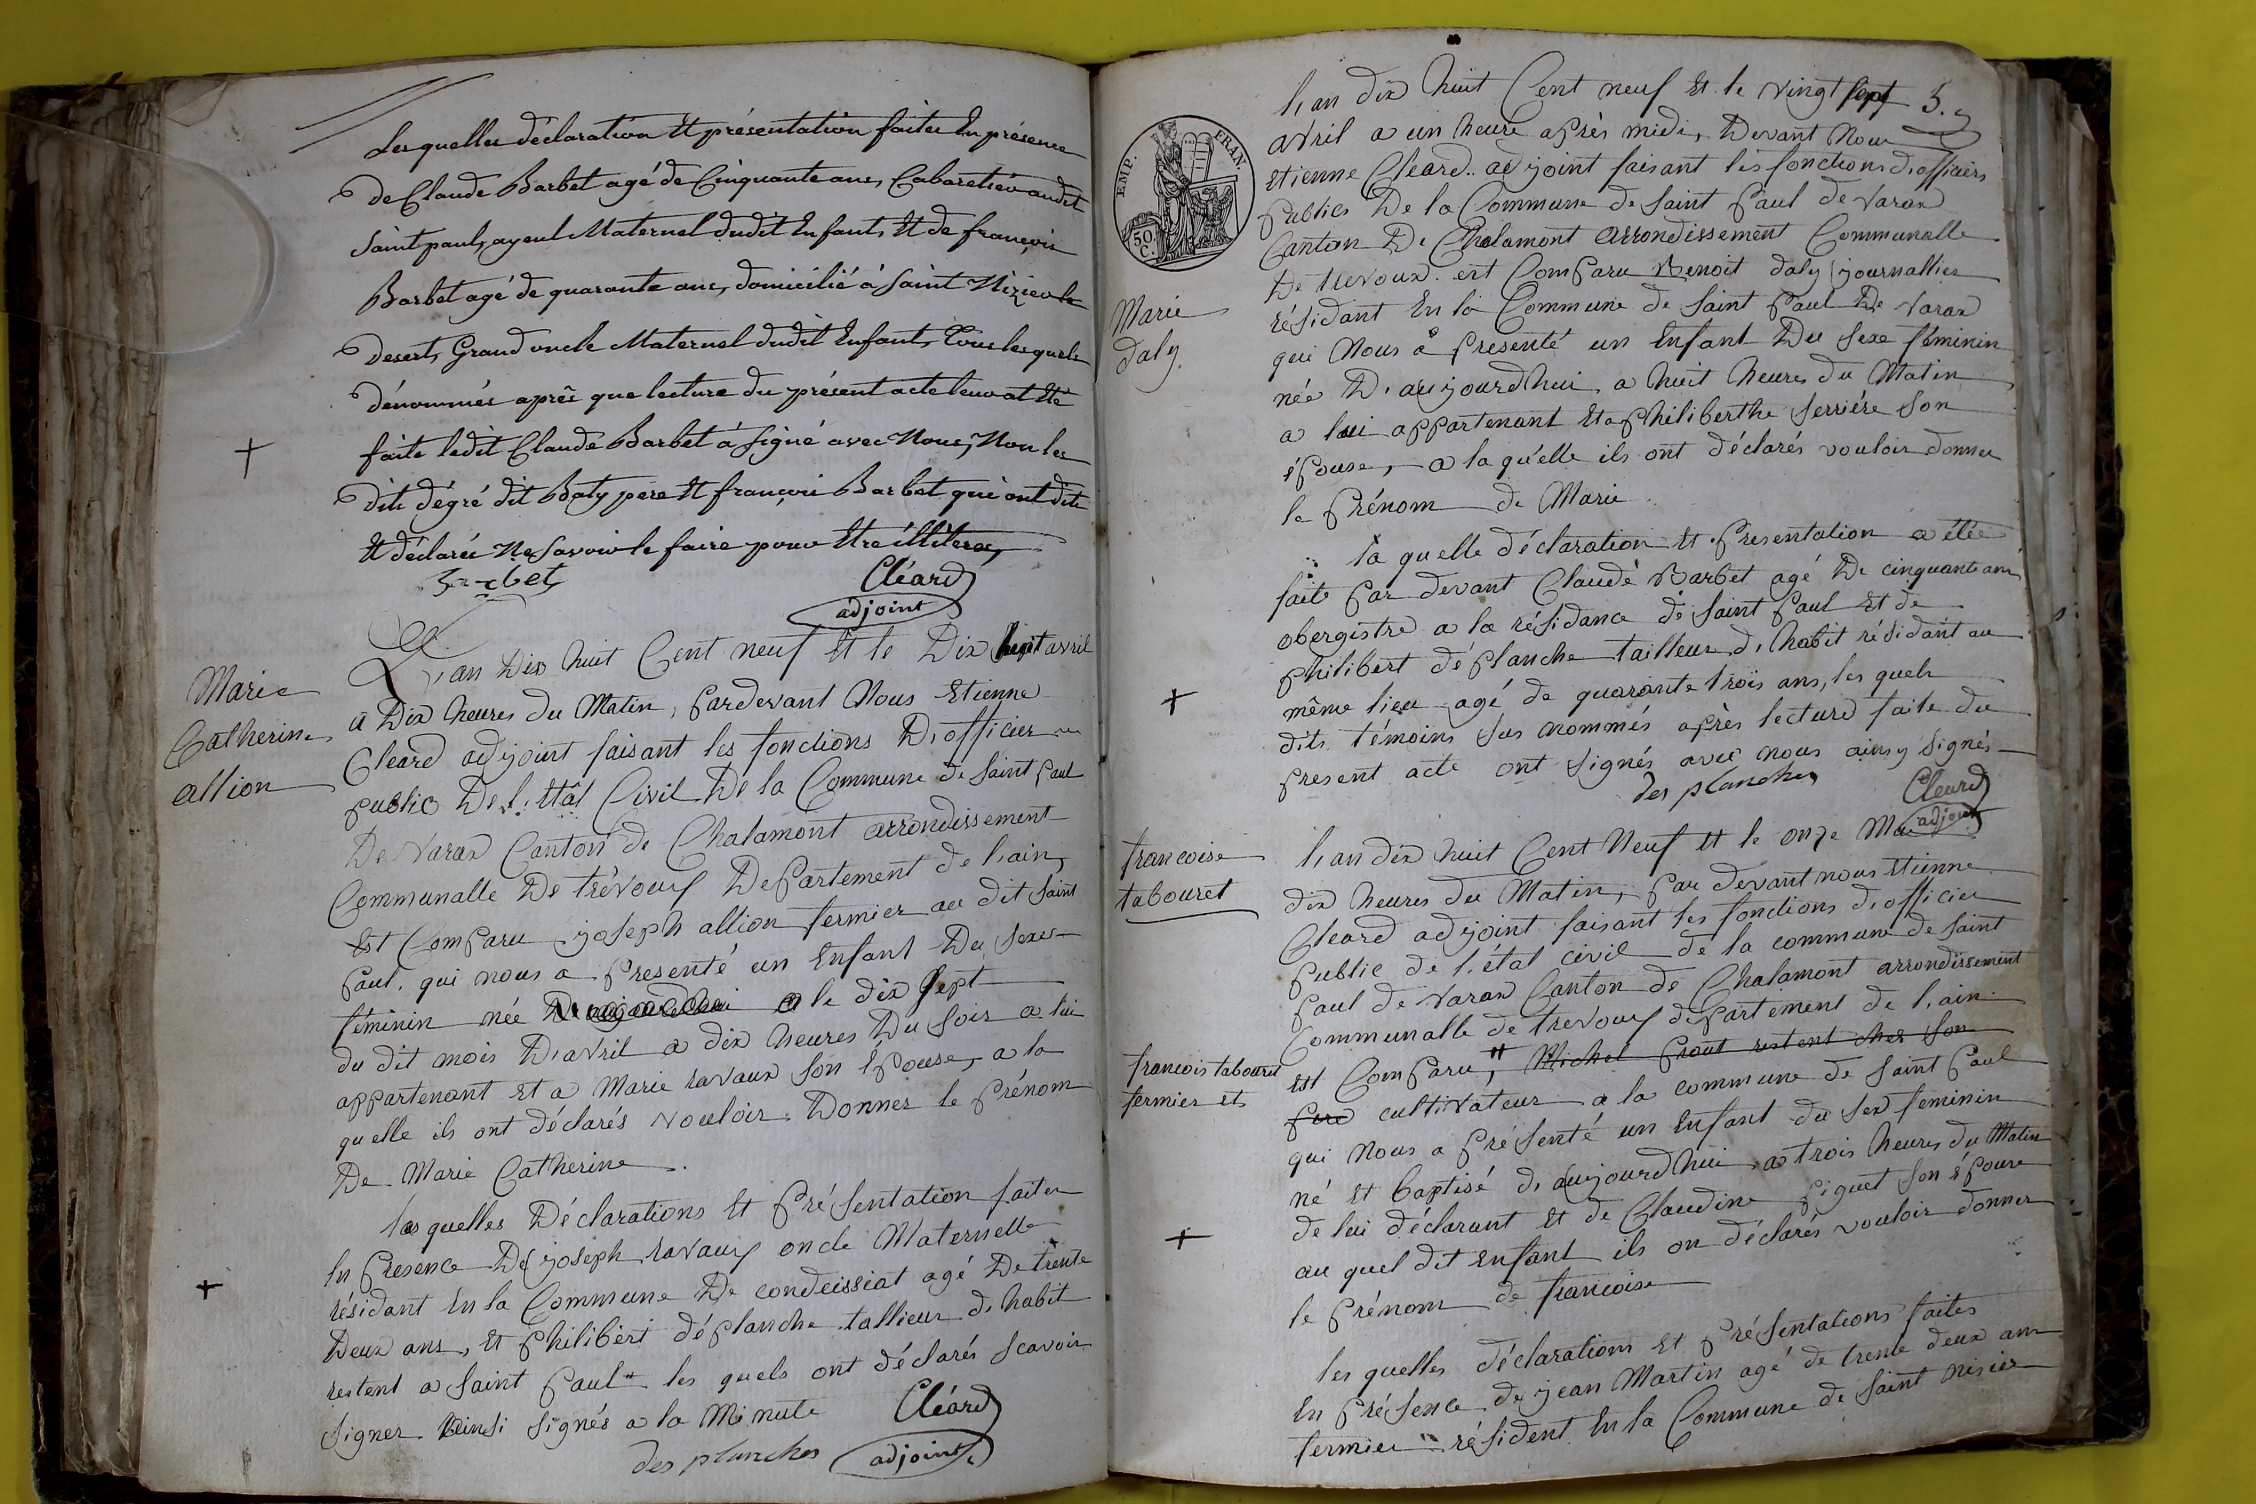 Lesquelles déclaration Et présentation faites En présence
de Claude Barbet agé de Cinquante ans, Cabaretier audit
Saint paul, ayeul Maternel dudit Enfant, Et de françois
Barbet agé de quarante ans, domicilié à Saint Nizier le
desert, Grand oncle Maternel dudit Enfant, Tous lesquels
dénommés après que lecture du présent acte leur at Eté
faite ledit Claude Barbet à Signé avec Nous, Non les
dits dégré dit Baty père Et françois Barbet qui ont dits
Et déclarés Ne Savoir le faire pour Etre illiteres,
Barbet
Cléard
adjoint
Marie
Catherine
allion
L'an Dix huit Cent neuf Et le Dix huit avril
a Dix heures Du Matin, pardevant Nous Etienne
Cleard adjoint faisant les fonctions D'officier
public De l'Etât Civil De la Commune de Saint paul
De Varax Canton de Chalamont arrondissement
Communalle De trévoux Departement de l'ain,
Est Comparu joseph allion fermier au dit Saint
paul, qui nous a presenté un Enfant Du Sexe
féminin née D'aujourdhui a le dix Sept
du dit mois D'avril a dix heures Du Soir a lui
appartenant Et a Marie ravaux Son Epouse, a la
quelle ils ont déclarés vouloir Donner le prénom
De Marie Catherine.
las quelles Déclarations Et présentation faites
En presence De joseph ravaux oncle Maternelle
résidant En la Commune De condeissiat agé De trente
Deux ans, Et philibert déplanche tallieur d'habit
restent a Saint paul les quels ont déclarés scavoir
Signer ainsi Signés a la Minute
des planches
Cléard
adjoint
5.
EMP. FRAN.
50 C.
Marie
daly.
l'an dix huit Cent neuf Et le vingt Sept
avril a un heure après midi, Devant Nous
Etienne Cleard adjoint faisant les fonctions d'officiers
publics De la Commune de Saint paul de Varax
Canton De Chalamont arrondissement Communalle
De trevoux est Comparu Benoit daly journallier
résidant En la Commune de Saint paul De Varax
qui Nous a presenté un Enfant Du Sexe féminin
née D'aujourd'hui a huit heures du Matin
a lui appartenant Et a philiberthe Serriére Son
épouse, a la qu'elle ils ont déclarés vouloir donner
le prénom de Marie.
la quelle déclaration Et presentation a étée
faite par devant Claude Barbet agé De cinquante ans
obergistre a la résidance de Saint paul Et de
philibert déplanche tailleur d'habit résidant au
même lieu agé de quarante trois ans, les quels
dits témoins Sus nommés après lecture faite du
present acte ont Signés avec nous ainsy Signés
des planches
Cleard
adjoint
francoise
tabouret
l'an dix huit Cent Neuf Et le onze Mai
dix heures du Matin, par devant nous Etienne
Cleard adjoint faisant les fonctions d'officier
public de l'état civil de la commune de Saint
paul de Varax Canton de Chalamont arrondissement
Communalle de trevoux departement de l'ain.
francois tabouret
fermier et
Est Comparu, Michel prout restent ches Son
pere cultivateur a la commune de Saint paul
qui Nous a présenté un Enfant du Sex feminin
né Et baptisé d'aujourdhui a trois heures du Matin
de lui déclarant Et de Claudine piguet Son épouse
au quel dit Enfant ils on déclarés vouloir donner
le prénom de francoise
les quelles déclarations Et présentations faites
En présence de jean Martin agé de trente deux ans
fermier résident En la Commune de Saint nisier